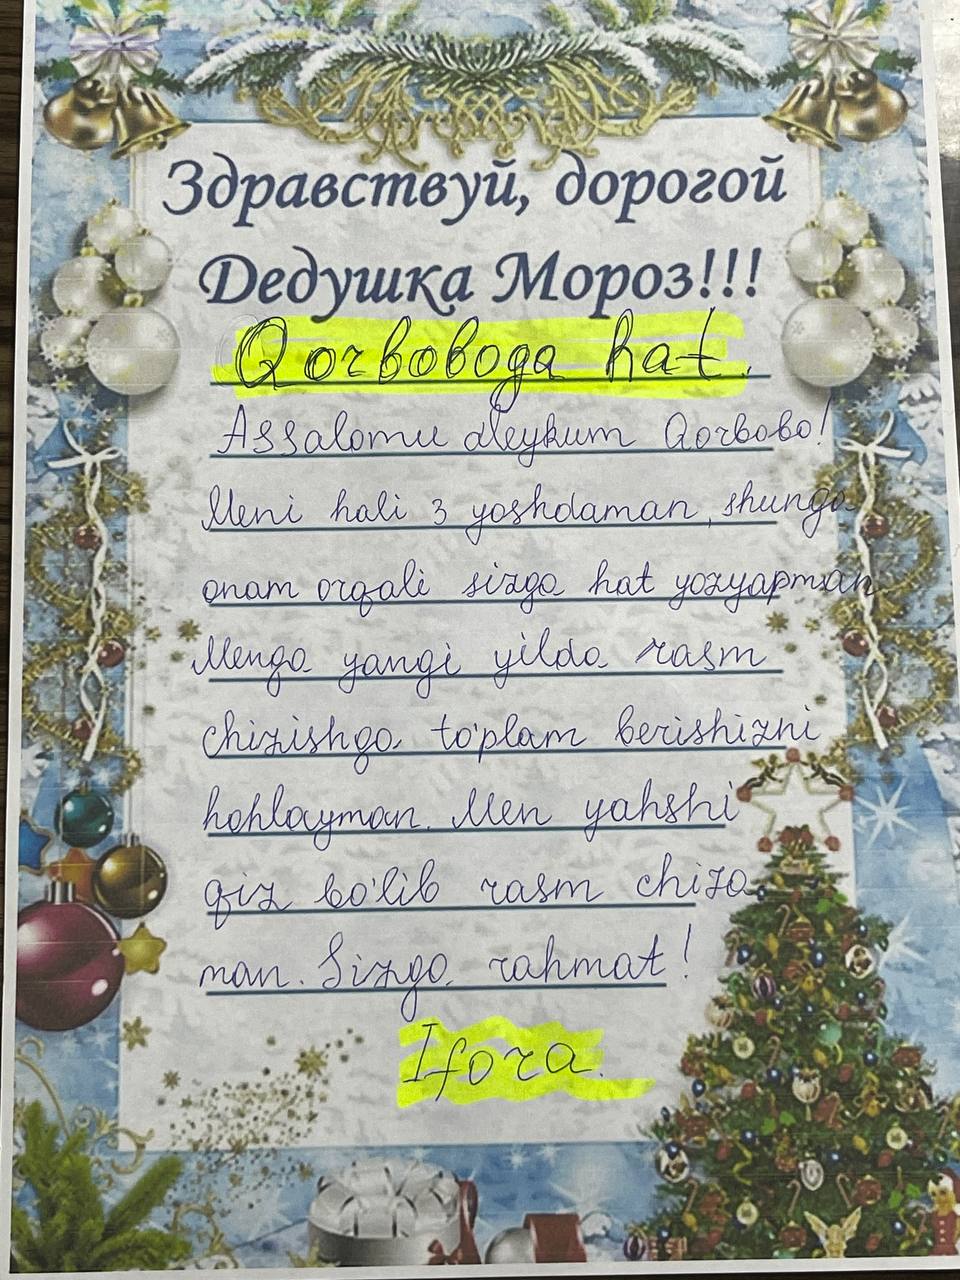 Здравствуй, дорогой
Дедушка Мороз!!!
Qorboboga hat.
Assalomu aleykum Qorbobo!
Meni hali 3 yoshdaman, shunga
onam orqali sizga hat yozyapman
Menga yangi yilda rasm
chizishga to'plam berishizni
hohlayman. Men yahshi
qiz bo'lib rasm chiza
man. Sizga rahmat!
Ifora.